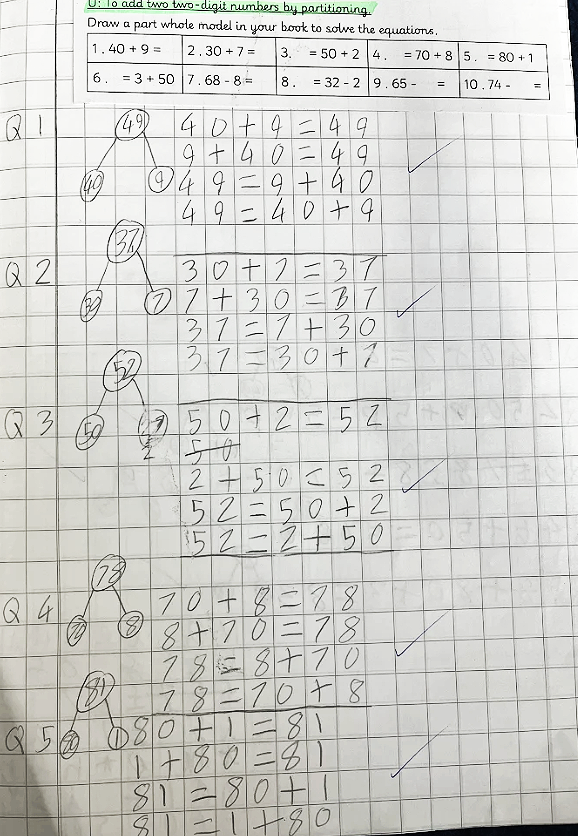 U: To add two two-digit numbers by partitioning.
Draw a part whole model in your book to solve the equations.
1. 40 + 9 = 2. 30 + 7 = 3. = 50 + 2 4. = 70 + 8 5. = 80 + 1
6. = 3 + 50 7. 68 - 8 = 8. = 32 - 2 9. 65 - = 10. 74 - =
Q 1
49
40 9
40 + 9 = 49
9 + 40 = 49
49 = 9 + 40
49 = 40 + 9
Q 2
37
30 7
30 + 7 = 37
7 + 30 = 37
37 = 7 + 30
37 = 30 + 7
Q 3
52
50 2
50 + 2 = 52
50
2 + 50 = 52
52 = 50 + 2
52 = 2 + 50
Q 4
78
70 8
70 + 8 = 78
8 + 70 = 78
78 = 8 + 70
78 = 70 + 8
Q 5
81
80 1
80 + 1 = 81
1 + 80 = 81
81 = 80 + 1
81 = 1 + 80